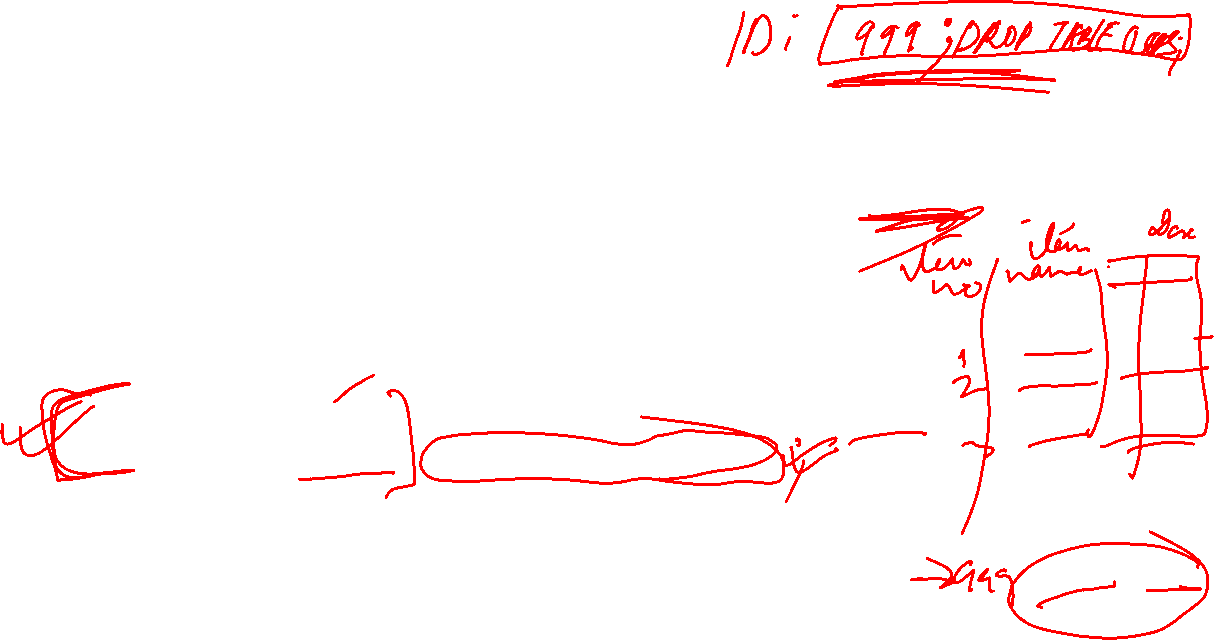 ID: 999 ; DROP TABLE
item no
item name
1
2
→ 999